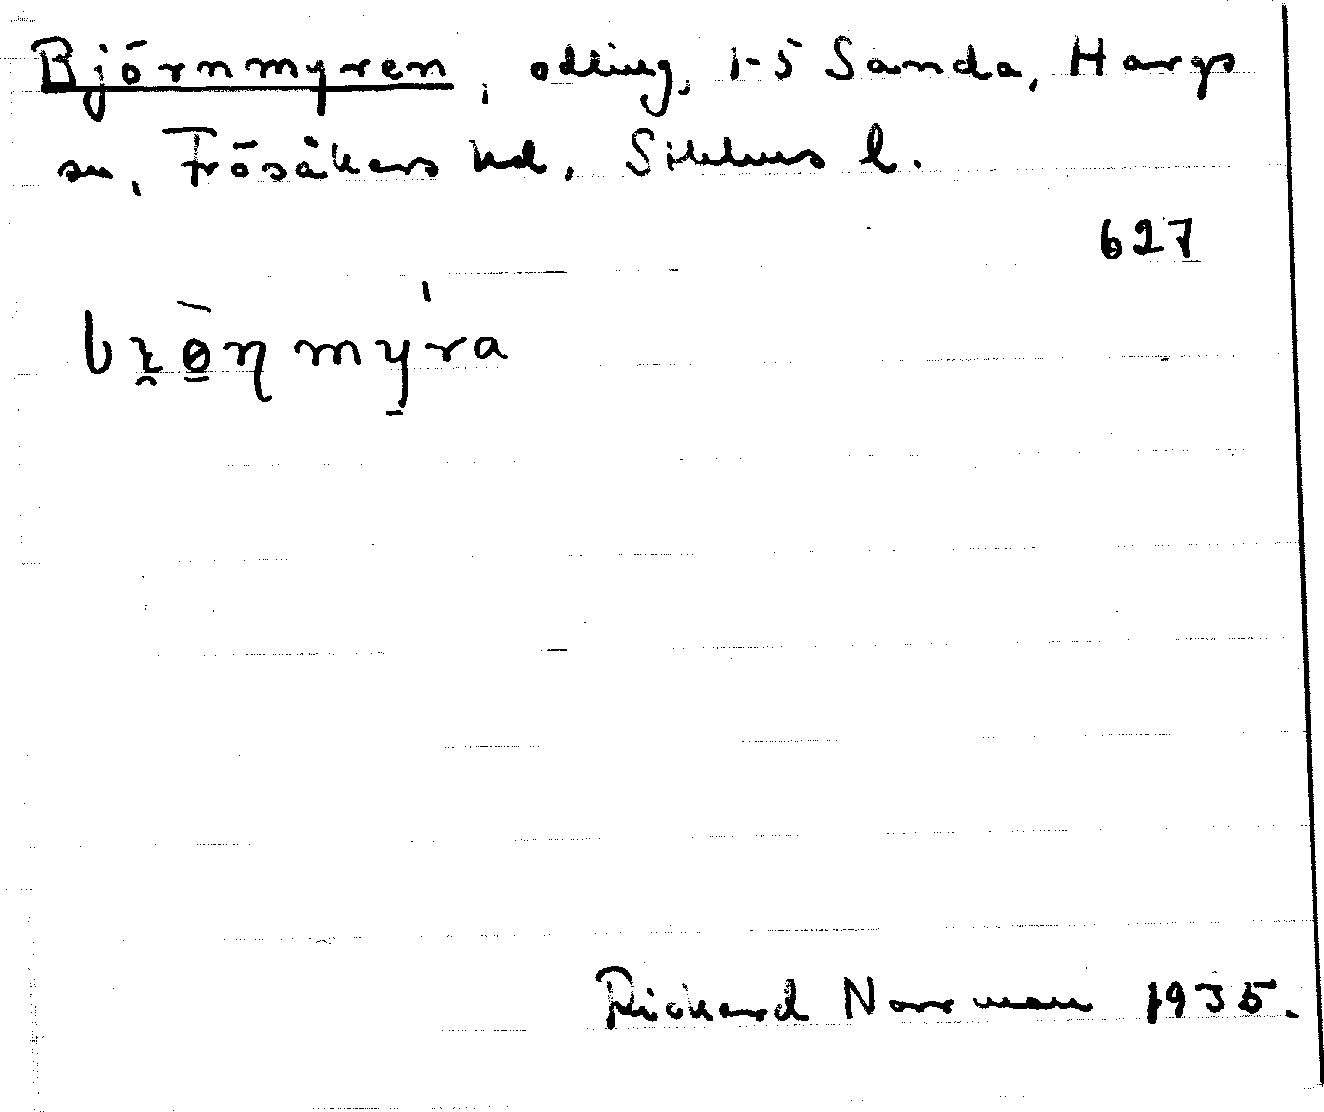 Björnmyren, odling, 1-5 Sanda, Hargs
sn, Frösåkers hd, Sthlms l.
627
Rickard Norrman 1935.